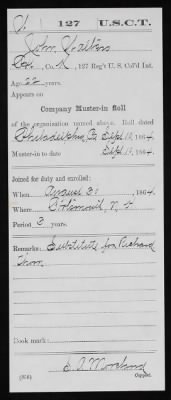 127 U.S.C.T.
John
Co. K, 127 Reg't U. S. Col'd Inf.
Age 22 years.
Appears on
Company Muster-in Roll
of the organization named above. Roll dated
Philadelphia, Pa Sept 10, 1864.
Muster-in to date Sept 10, 1864.
Joined for duty and enrolled:
When August 31, 1864.
Where Portsmouth, N. H
Period 3 years.
Remarks: Substitute for Richard
Thorn
Book mark:
(356) Copyist.